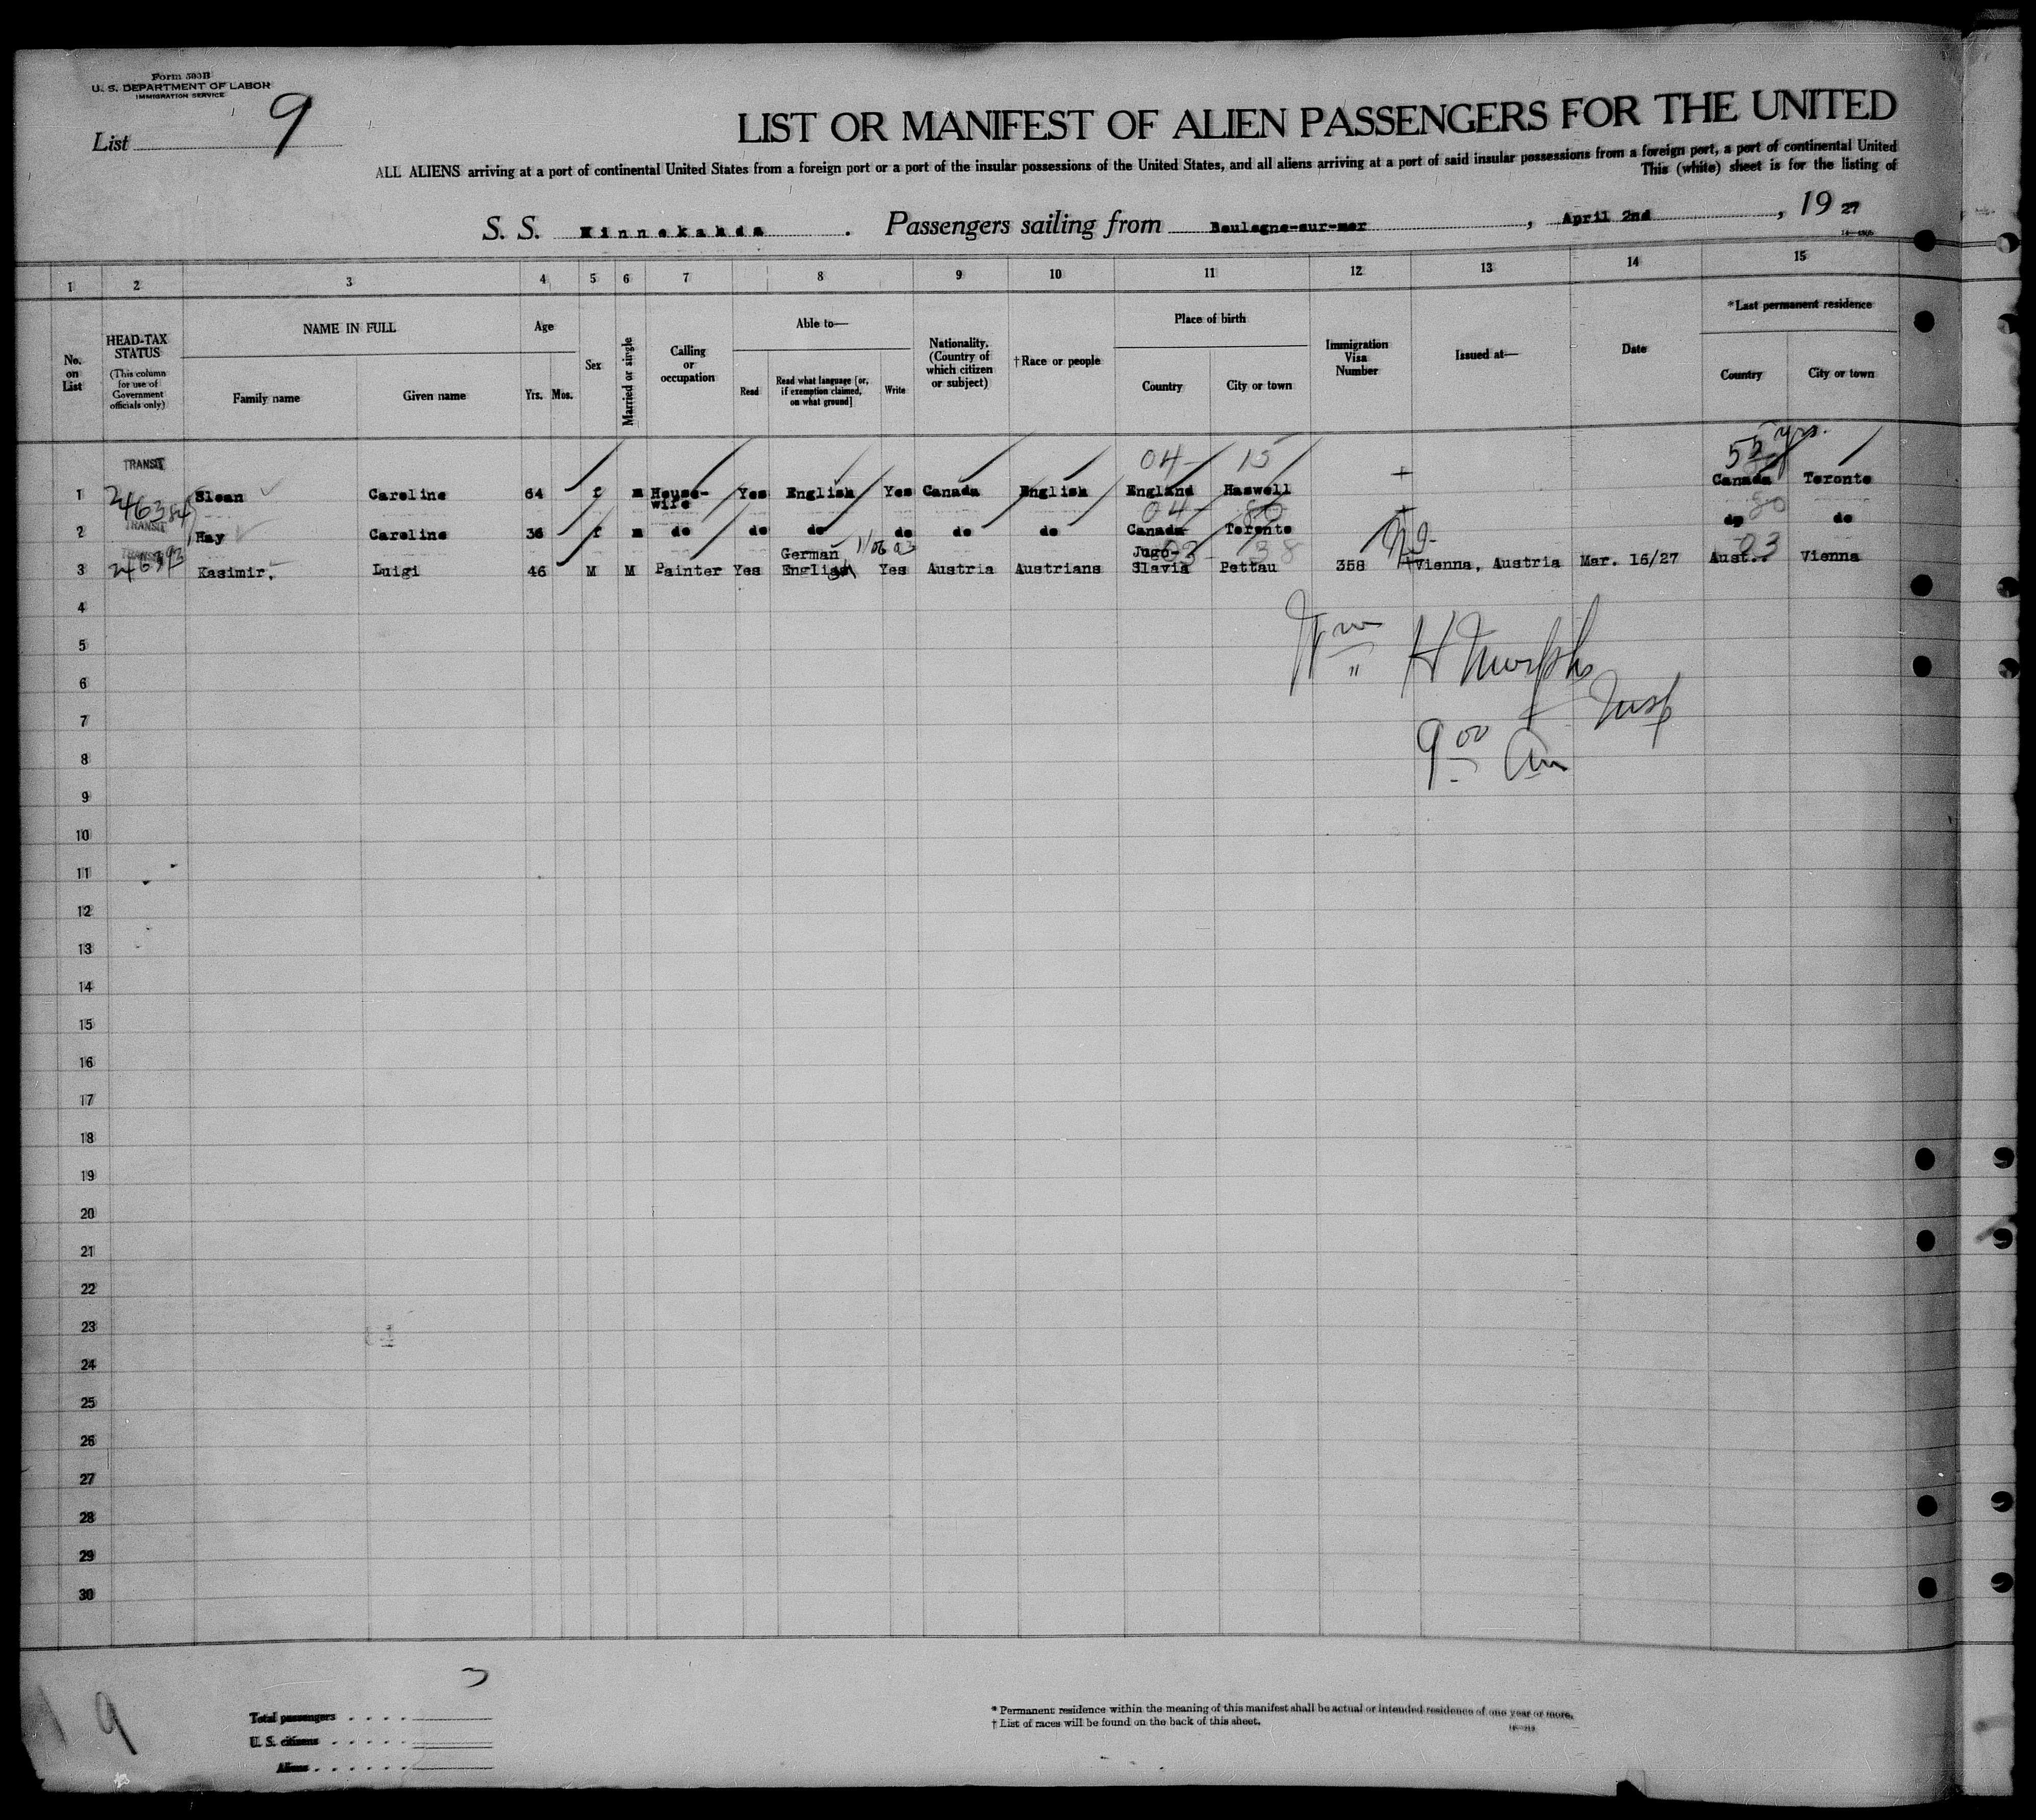 Form 503B
U. S. DEPARTMENT OF LABOR
IMMIGRATION SERVICE
List 9
LIST OR MANIFEST OF ALIEN PASSENGERS FOR THE UNITED
ALL ALIENS arriving at a port of continental United States from a foreign port or a port of the insular possessions of the United States, and all aliens arriving at a port of said insular possessions from a foreign port, a port of continental United
This (white) sheet is for the listing of
S. S. Minnekahda . Passengers sailing from Boulogne-sur-mer , April 2nd , 19 27
1 2 3 4 5 6 7 8 9 10 11 12 13 14 15
No. on List
HEAD-TAX STATUS
(This column for use of Government officials only)
NAME IN FULL
Family name
Given name
Age
Yrs. Mos.
Sex
Married or single
Calling or occupation
Able to—
Read
Read what language [or, if exemption claimed, on what ground]
Write
Nationality. (Country of which citizen or subject)
†Race or people
Place of birth
Country
City or town
Immigration Visa Number
Issued at—
Date
*Last permanent residence
Country
City or town
TRANSIT 04- 15 + 55 yrs.
1 Sloan Caroline 64 f m House-wife Yes English Yes Canada English England Haswell Canada Toronto
246384
TRANSIT 04- 80 + 80
2 Hay Caroline 36 f m do do do do do do Canada Toronto do do
TRANSIT
246393
3 Kasimir, Luigi 46 M M Painter Yes German English Yes Austria Austrians Jugo-Slavia Pettau 358 Vienna, Austria Mar. 16/27 Aust.. Vienna
03- 38 03
4
5
Wm H Murphy
6
Insp
7
9 00 am
8
9
10
11
12
13
14
15
16
17
18
19
20
21
22
23
24
25
26
27
28
29
30
3
9
Total passengers . . . .
U. S. citizens . . . . .
Aliens . . . . . .
* Permanent residence within the meaning of this manifest shall be actual or intended residence of one year or more.
† List of races will be found on the back of this sheet.